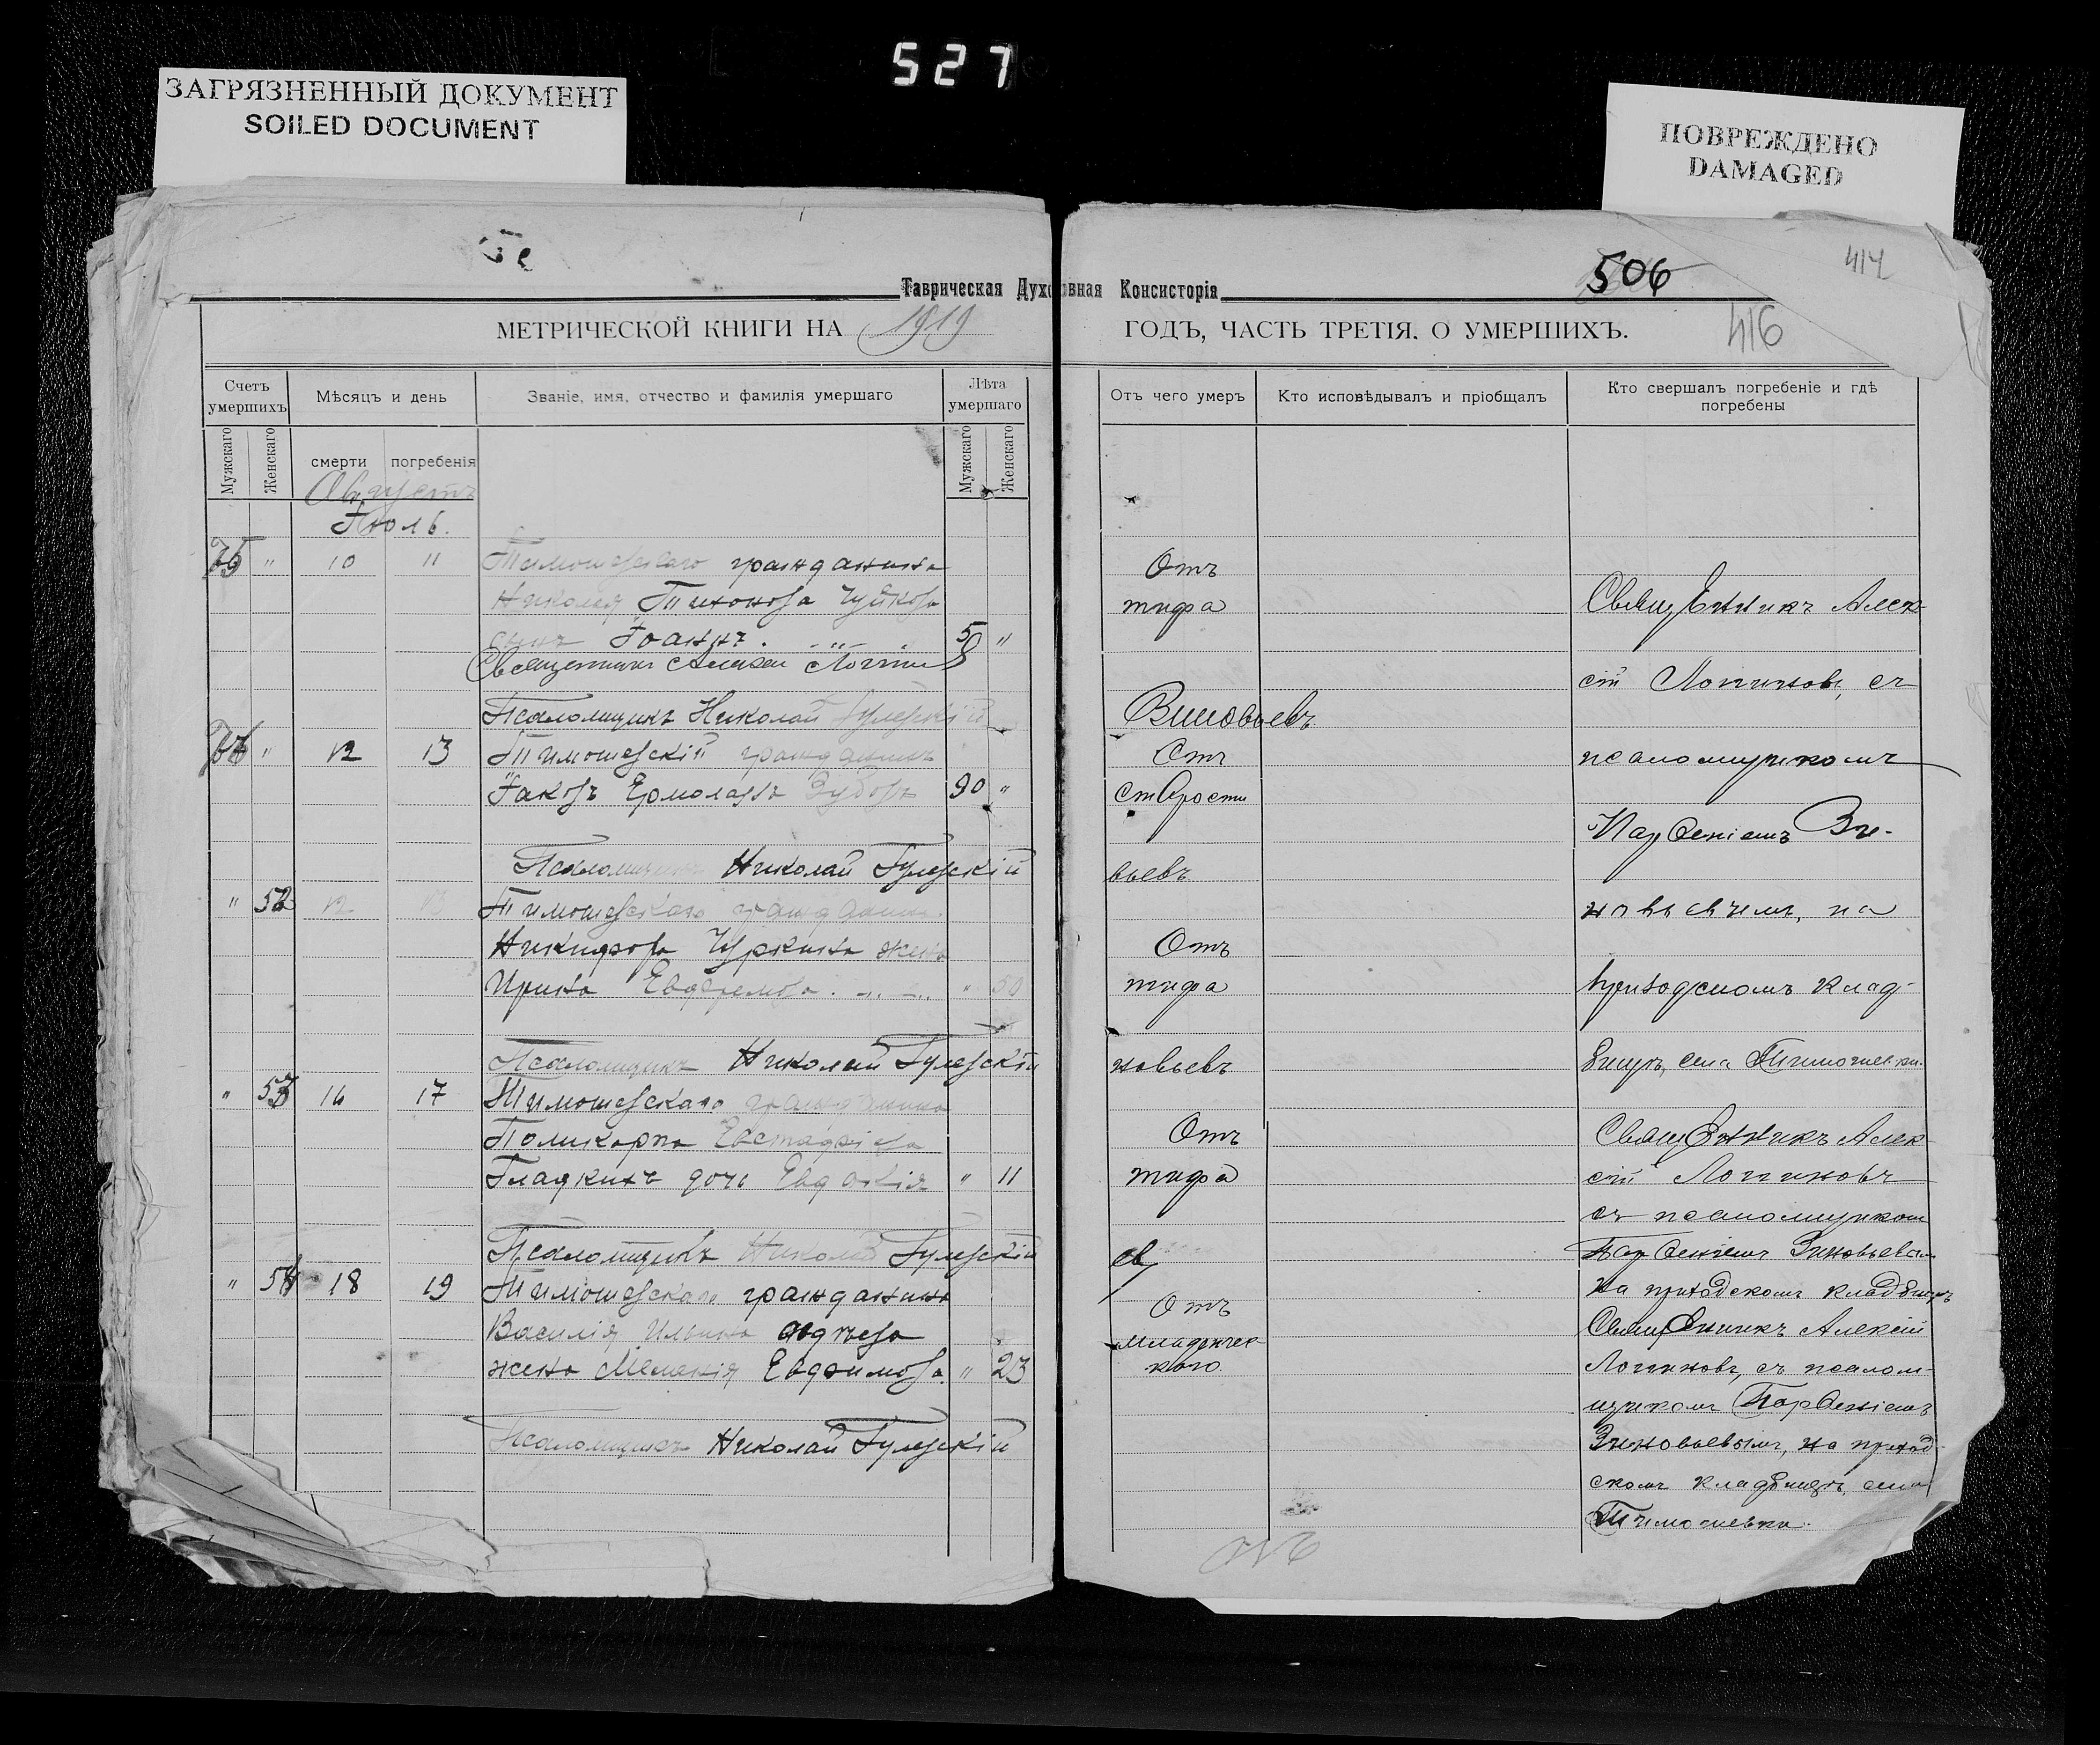 527
ЗАГРЯЗНЕННЫЙ ДОКУМЕНТ
SOILED DOCUMENT
ПОВРЕЖДЕНО
DAMAGED
506
414
416
Таврическая Духовная Консисторія
МЕТРИЧЕСКОЙ КНИГИ НА 1919 ГОДЪ, ЧАСТЬ ТРЕТІЯ. О УМЕРШИХЪ.
Счетъ умершихъ
Мѣсяцъ и день
Званіе, имя, отчество и фамилія умершаго
Лѣта умершаго
Мужскаго
Женскаго
смерти
погребенія
Мужскаго
Женскаго
Августъ
Іюль.
75 " 10 11 Тимошевскаго гражданина
Николая Тихонова Чуйкова
сынъ Іоаннъ. 5 "
Священникъ Алексей
Псаломщикъ Николай Гулевскій
76 " 12 13 Тимошевскій гражданинъ
Іаковъ Ермолаевъ Зубовъ 90 "
Псаломщикъ Николай Гулевскій
" 52 12 13 Тимошевскаго гражданина
Никифора Чуркина жена
Ирина Евфремова. " 50
Псаломщикъ Николай Гулевскій
" 53 16 17 Тимошевскаго гражданина
Поликарпа Евстафіева
Гладкихъ дочь Евдокія " 11
Псаломщикъ Николай Гулевскій
" 54 18 19 Тимошевскаго гражданина
Василія Ильина
жена Меланія Евфимова. " 23
Псаломщикъ Николай Гулевскій
Отъ чего умеръ
Кто исповѣдывалъ и пріобщалъ
Кто свершалъ погребеніе и гдѣ погребены
Отъ
тифа
Отъ
старости
вьевъ
Отъ
тифа
новьевъ
Отъ
тифа
Отъ
младенчес-
каго.
Священникъ Алек-
сій Логиновъ, съ
псаломщикомъ
Парѳеніемъ Зи-
новьевымъ, на
приходскомъ клад-
бищѣ, села Тимошевки.
Священникъ Алек
сій Логиновъ
съ псаломщиком
Парѳеніемъ Зиновьевым
на приходскомъ кладбищѣ
Священникъ Алексій
Логиновъ, съ псалом-
щикомъ Парѳеніемъ
Зиновьевымъ, на приход-
скомъ кладбищѣ, села
Тимошевки.